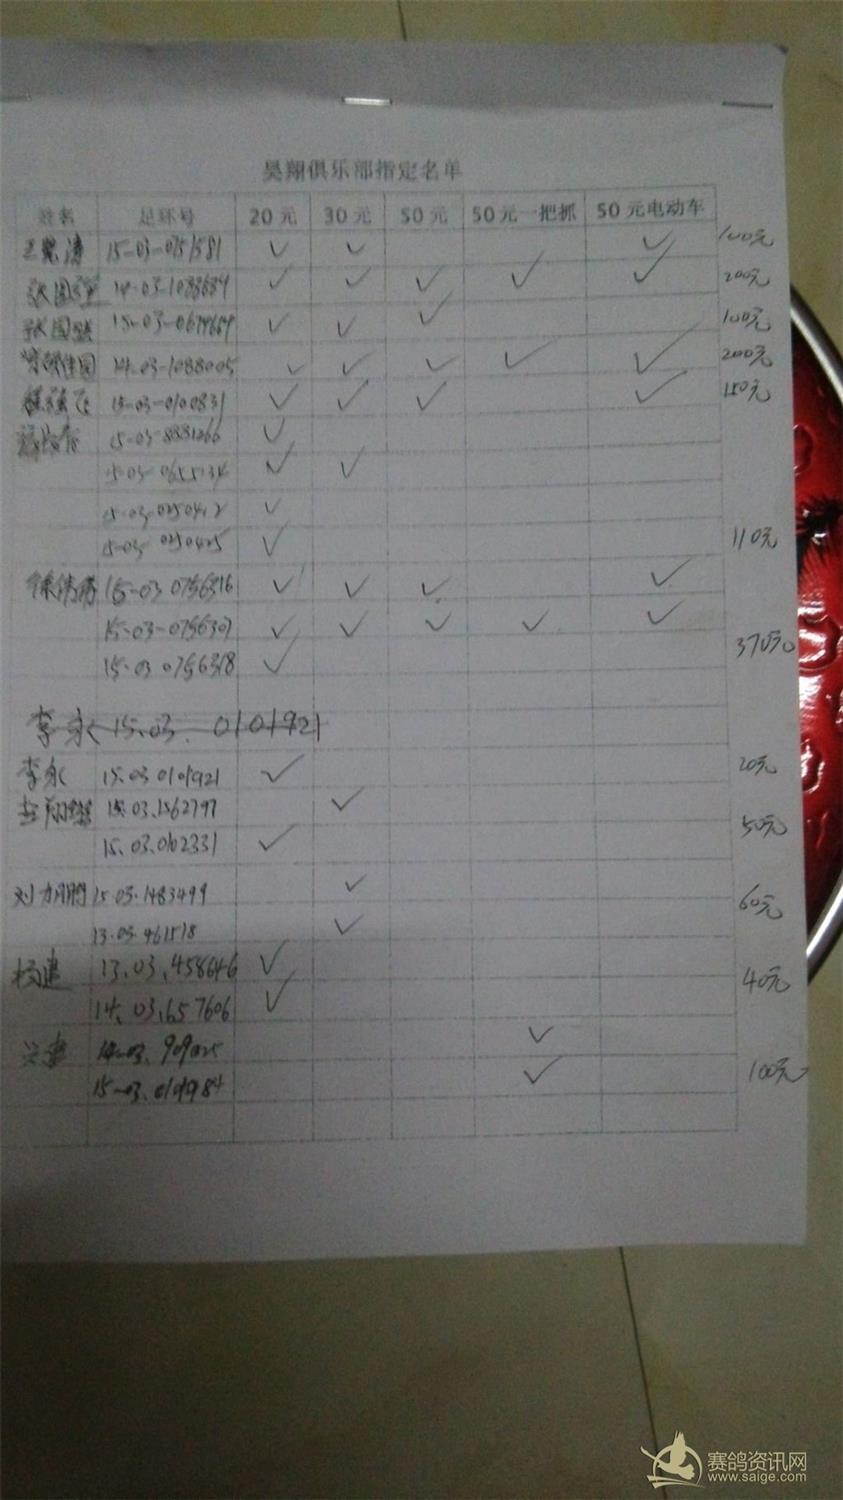 昊翔俱乐部指定名单
姓名 足环号 20元 30元 50元 50元一把抓 50元电动车
15-03-0751581 ✓ ✓ ✓ 100元
张国强 14-03-1088689 ✓ ✓ ✓ ✓ ✓ 200元
张国强 15-03-0674659 ✓ ✓ ✓ 100元
14-03-1088005 ✓ ✓ ✓ ✓ ✓ 200元
15-03-0100831 ✓ ✓ ✓ ✓ 150元
15-03-8881266 ✓
15-03-0655134 ✓ ✓
15-03-0250412 ✓
15-03-0250425 ✓ 110元
15-03 0756316 ✓ ✓ ✓ ✓
15-03-0756307 ✓ ✓ ✓ ✓ ✓
15-03 0756318 ✓ 370元
李永 15.03. 0101921
李永 15.03 0101921 ✓ 20元
15.03.1562797 ✓
15.03.0102331 ✓ 50元
刘 15.03.1483499 ✓
13.03.461518 ✓ 60元
杨建 13.03.458646 ✓
14.03.657606 ✓ 40元
14-03.909025 ✓
15-03.0101984 ✓ 100元
赛鸽资讯网
www.saige.com